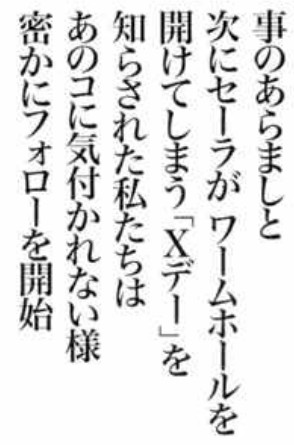 事のあらましと
次にセーラが ワームホールを
開けてしまう「Xデー」を
知らされた私たちは
あのコに気付かれない様
密かにフォローを開始